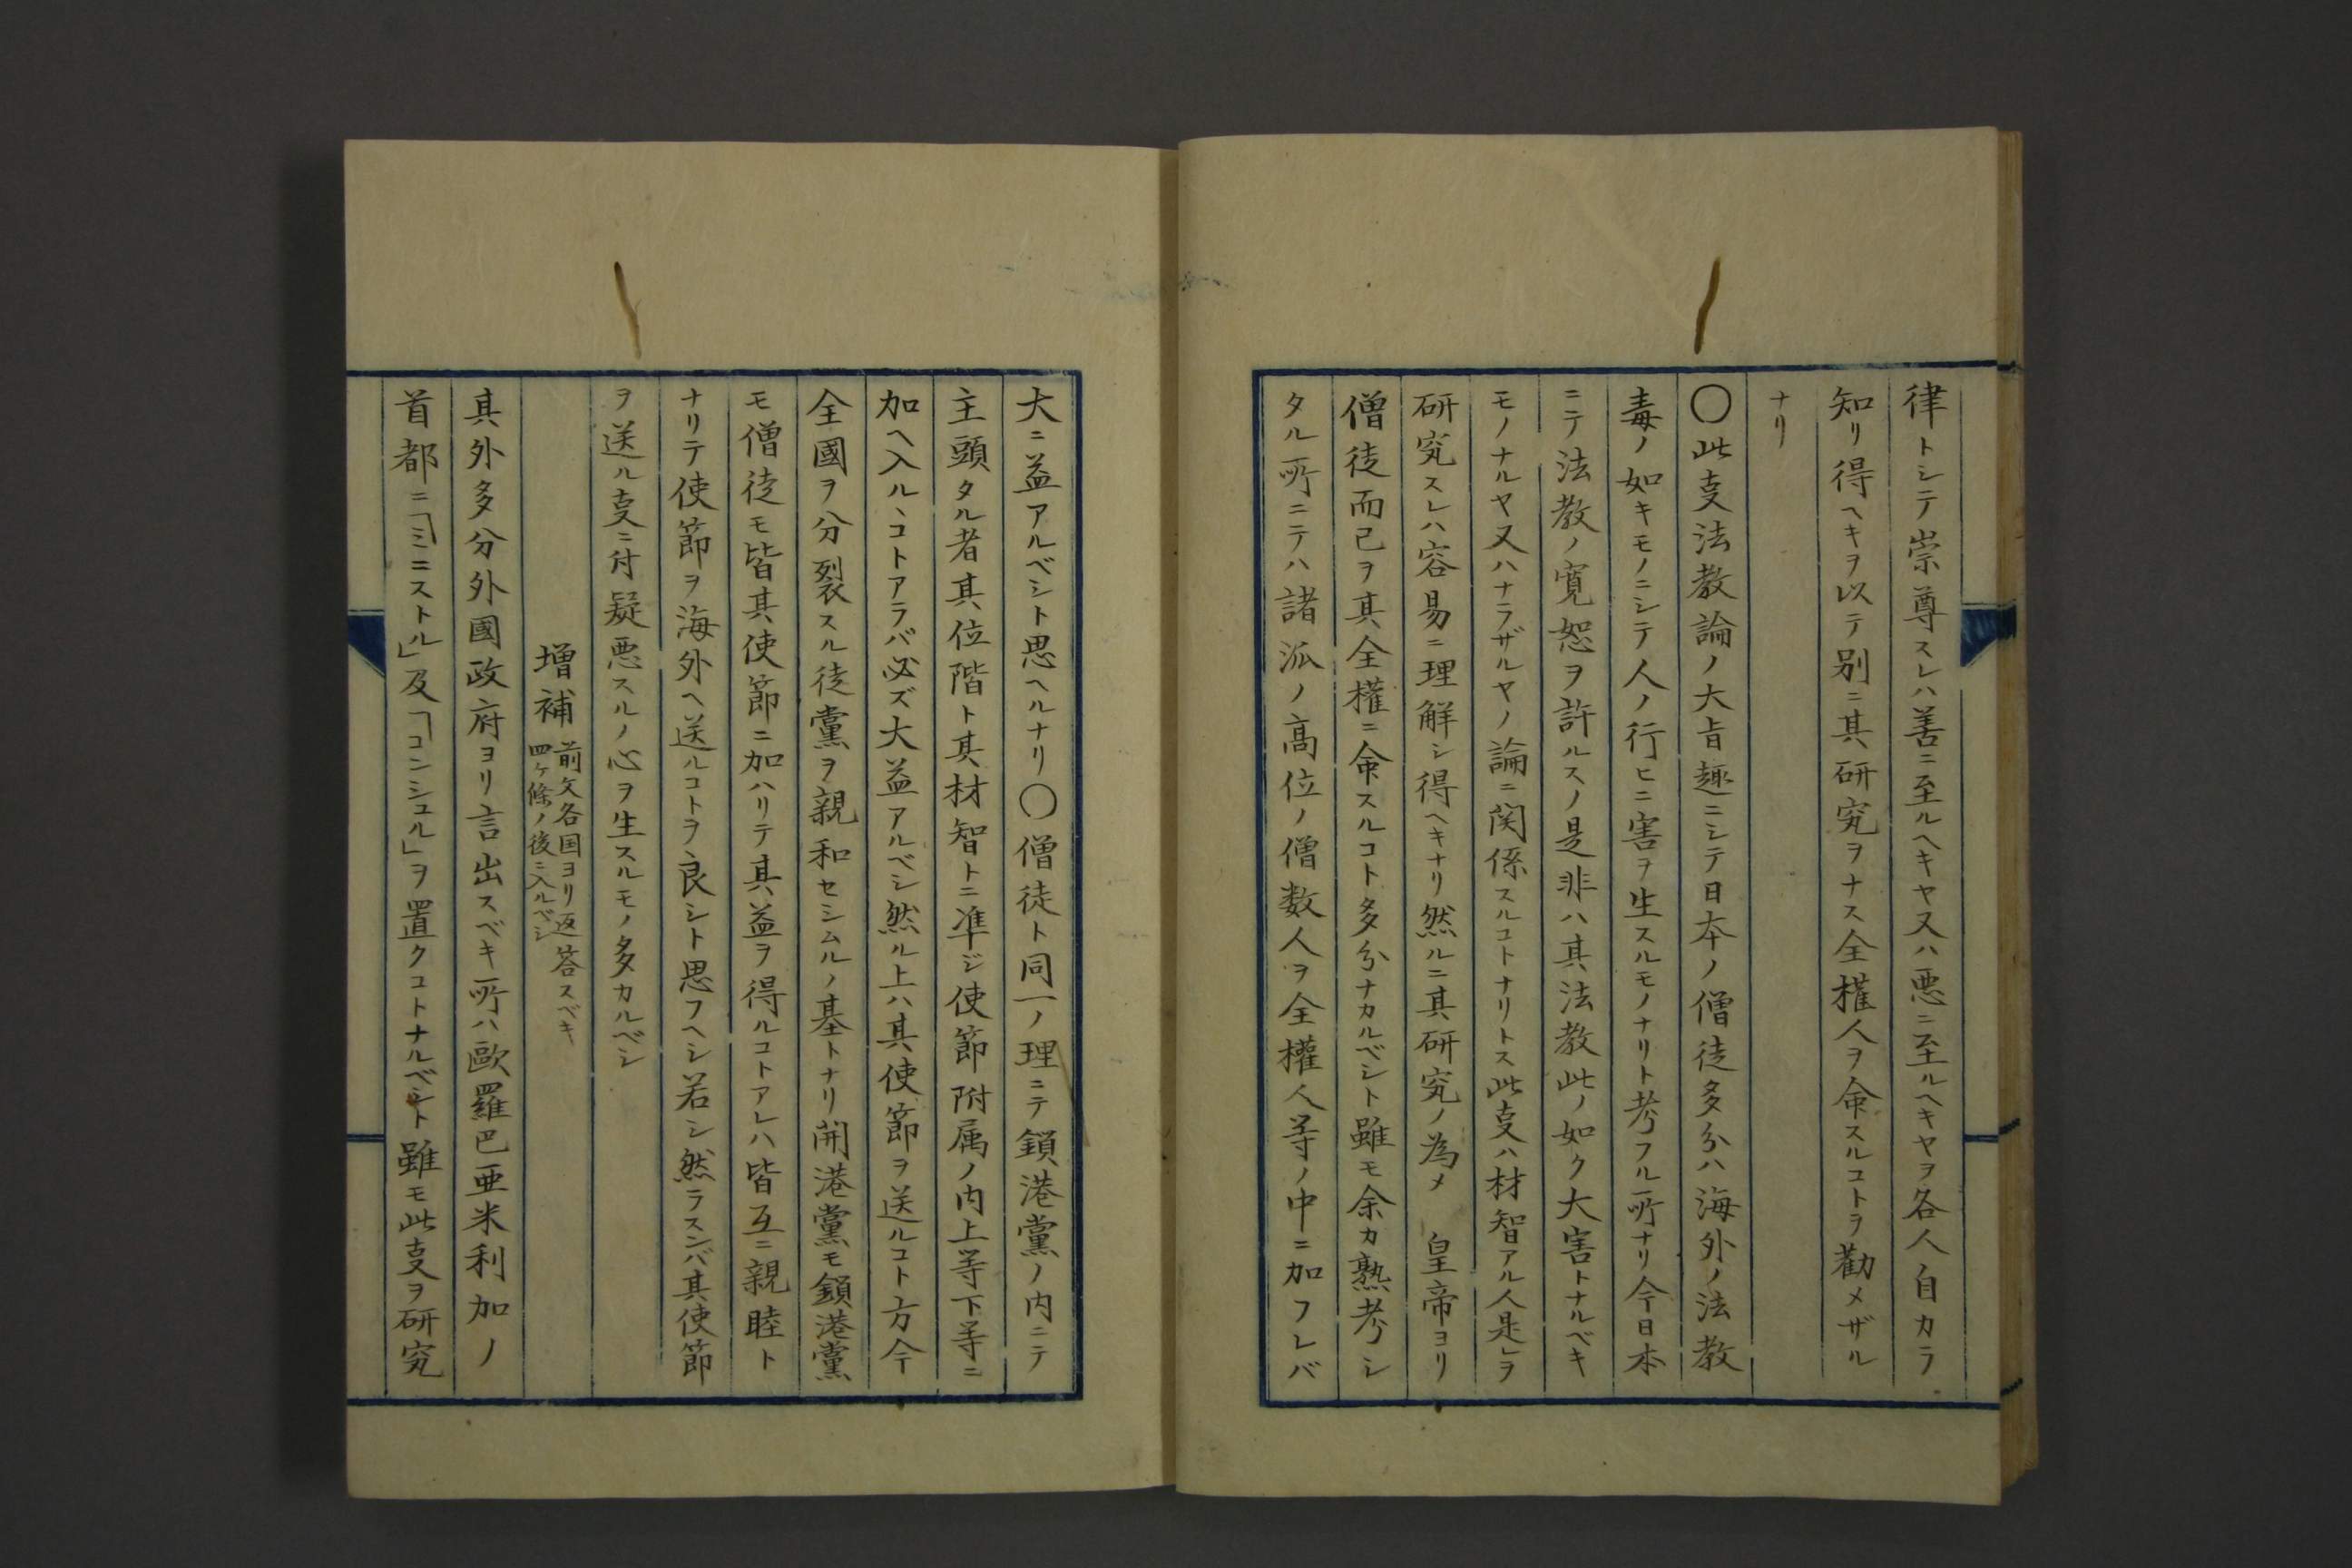 律トシテ崇尊スレハ善ニ至ルヘキヤ又ハ悪ニ至ルヘキヤヲ各人自カラ
知リ得ヘキヲ以テ別ニ其研究ヲナス全權人ヲ命スルコトヲ勸メザル
ナリ
〇此叓法教論ノ大旨趣ニシテ日本ノ僧徒多分ハ海外ノ法教
毒ノ如キモノニシテ人ノ行ヒニ害ヲ生スルモノナリト考フル所ナリ今日本
ニテ法教ノ寛恕ヲ許ルスノ是非ハ其法教此ノ如ク大害トナルベキ
モノナルヤ又ハナラザルヤノ論ニ関係スルコトナリトス此叓ハ材智アル人是ヲ
研究スレハ容易ニ理解シ得ヘキナリ然ルニ其研究ノ為メ　皇帝ヨリ
僧徒而已ヲ其全權ニ命スルコト多分ナカルベシト雖モ余カ熟考シ
タル所ニテハ諸派ノ高位ノ僧数人ヲ全權人等ノ中ニ加フレバ
大ニ益アルベシト思ヘルナリ〇僧徒ト同一ノ理ニテ鎖港黨ノ内ニテ
主頭タル者其位階ト其材智トニ准ジ使節附属ノ内上等下等ニ
加ヘ入ルヽコトアラバ必ズ大益アルベシ然ル上ハ其使節ヲ送ルコト方今
全國ヲ分裂スル徒黨ヲ親和セシムルノ基トナリ開港黨モ鎖港黨
モ僧徒モ皆其使節ニ加ハリテ其益ヲ得ルコトアレハ皆互ニ親睦ト
ナリテ使節ヲ海外ヘ送ルコトヲ良シト思フヘシ若シ然ラスンバ其使節
ヲ送ル叓ニ付疑悪スルノ心ヲ生スルモノ多カルベシ
増補 前文各国ヨリ返答スベキ
四ケ條ノ後ニ入ルベシ
其外多分外國政府ヨリ言出スベキ所ハ歐羅巴亜米利加ノ
首都ニ「ミニストル」及「コンシュル」ヲ置クコトナルベシト雖モ此叓ヲ研究